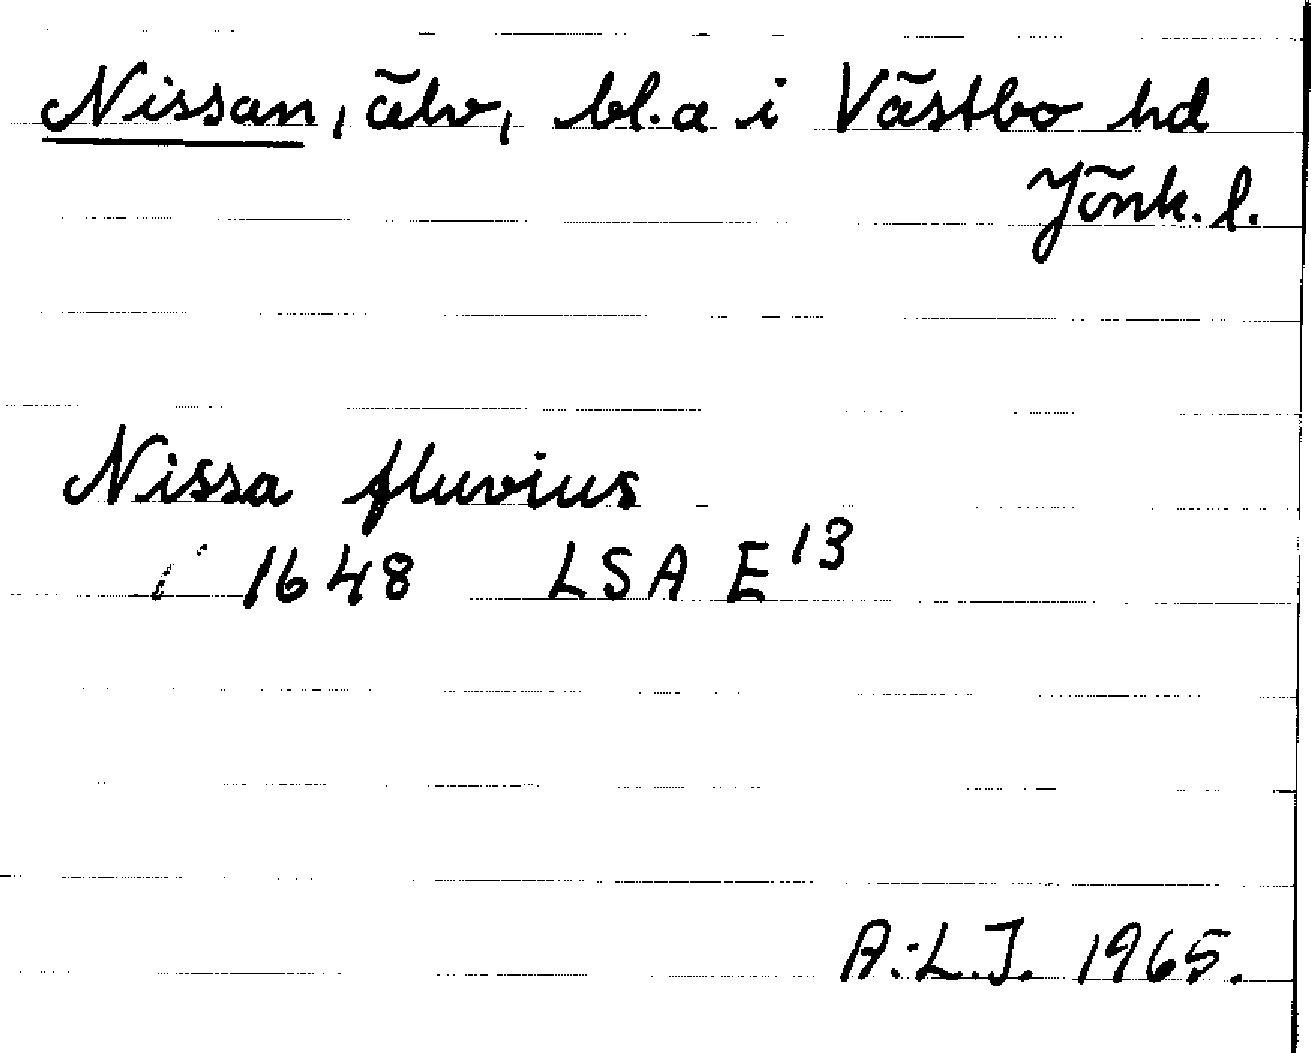 Nissan, älv, bl.a i Västbo hd
Jönk. l.
Nissa fluvius
i 1648 LSA E 13
A.-L.J. 1965.